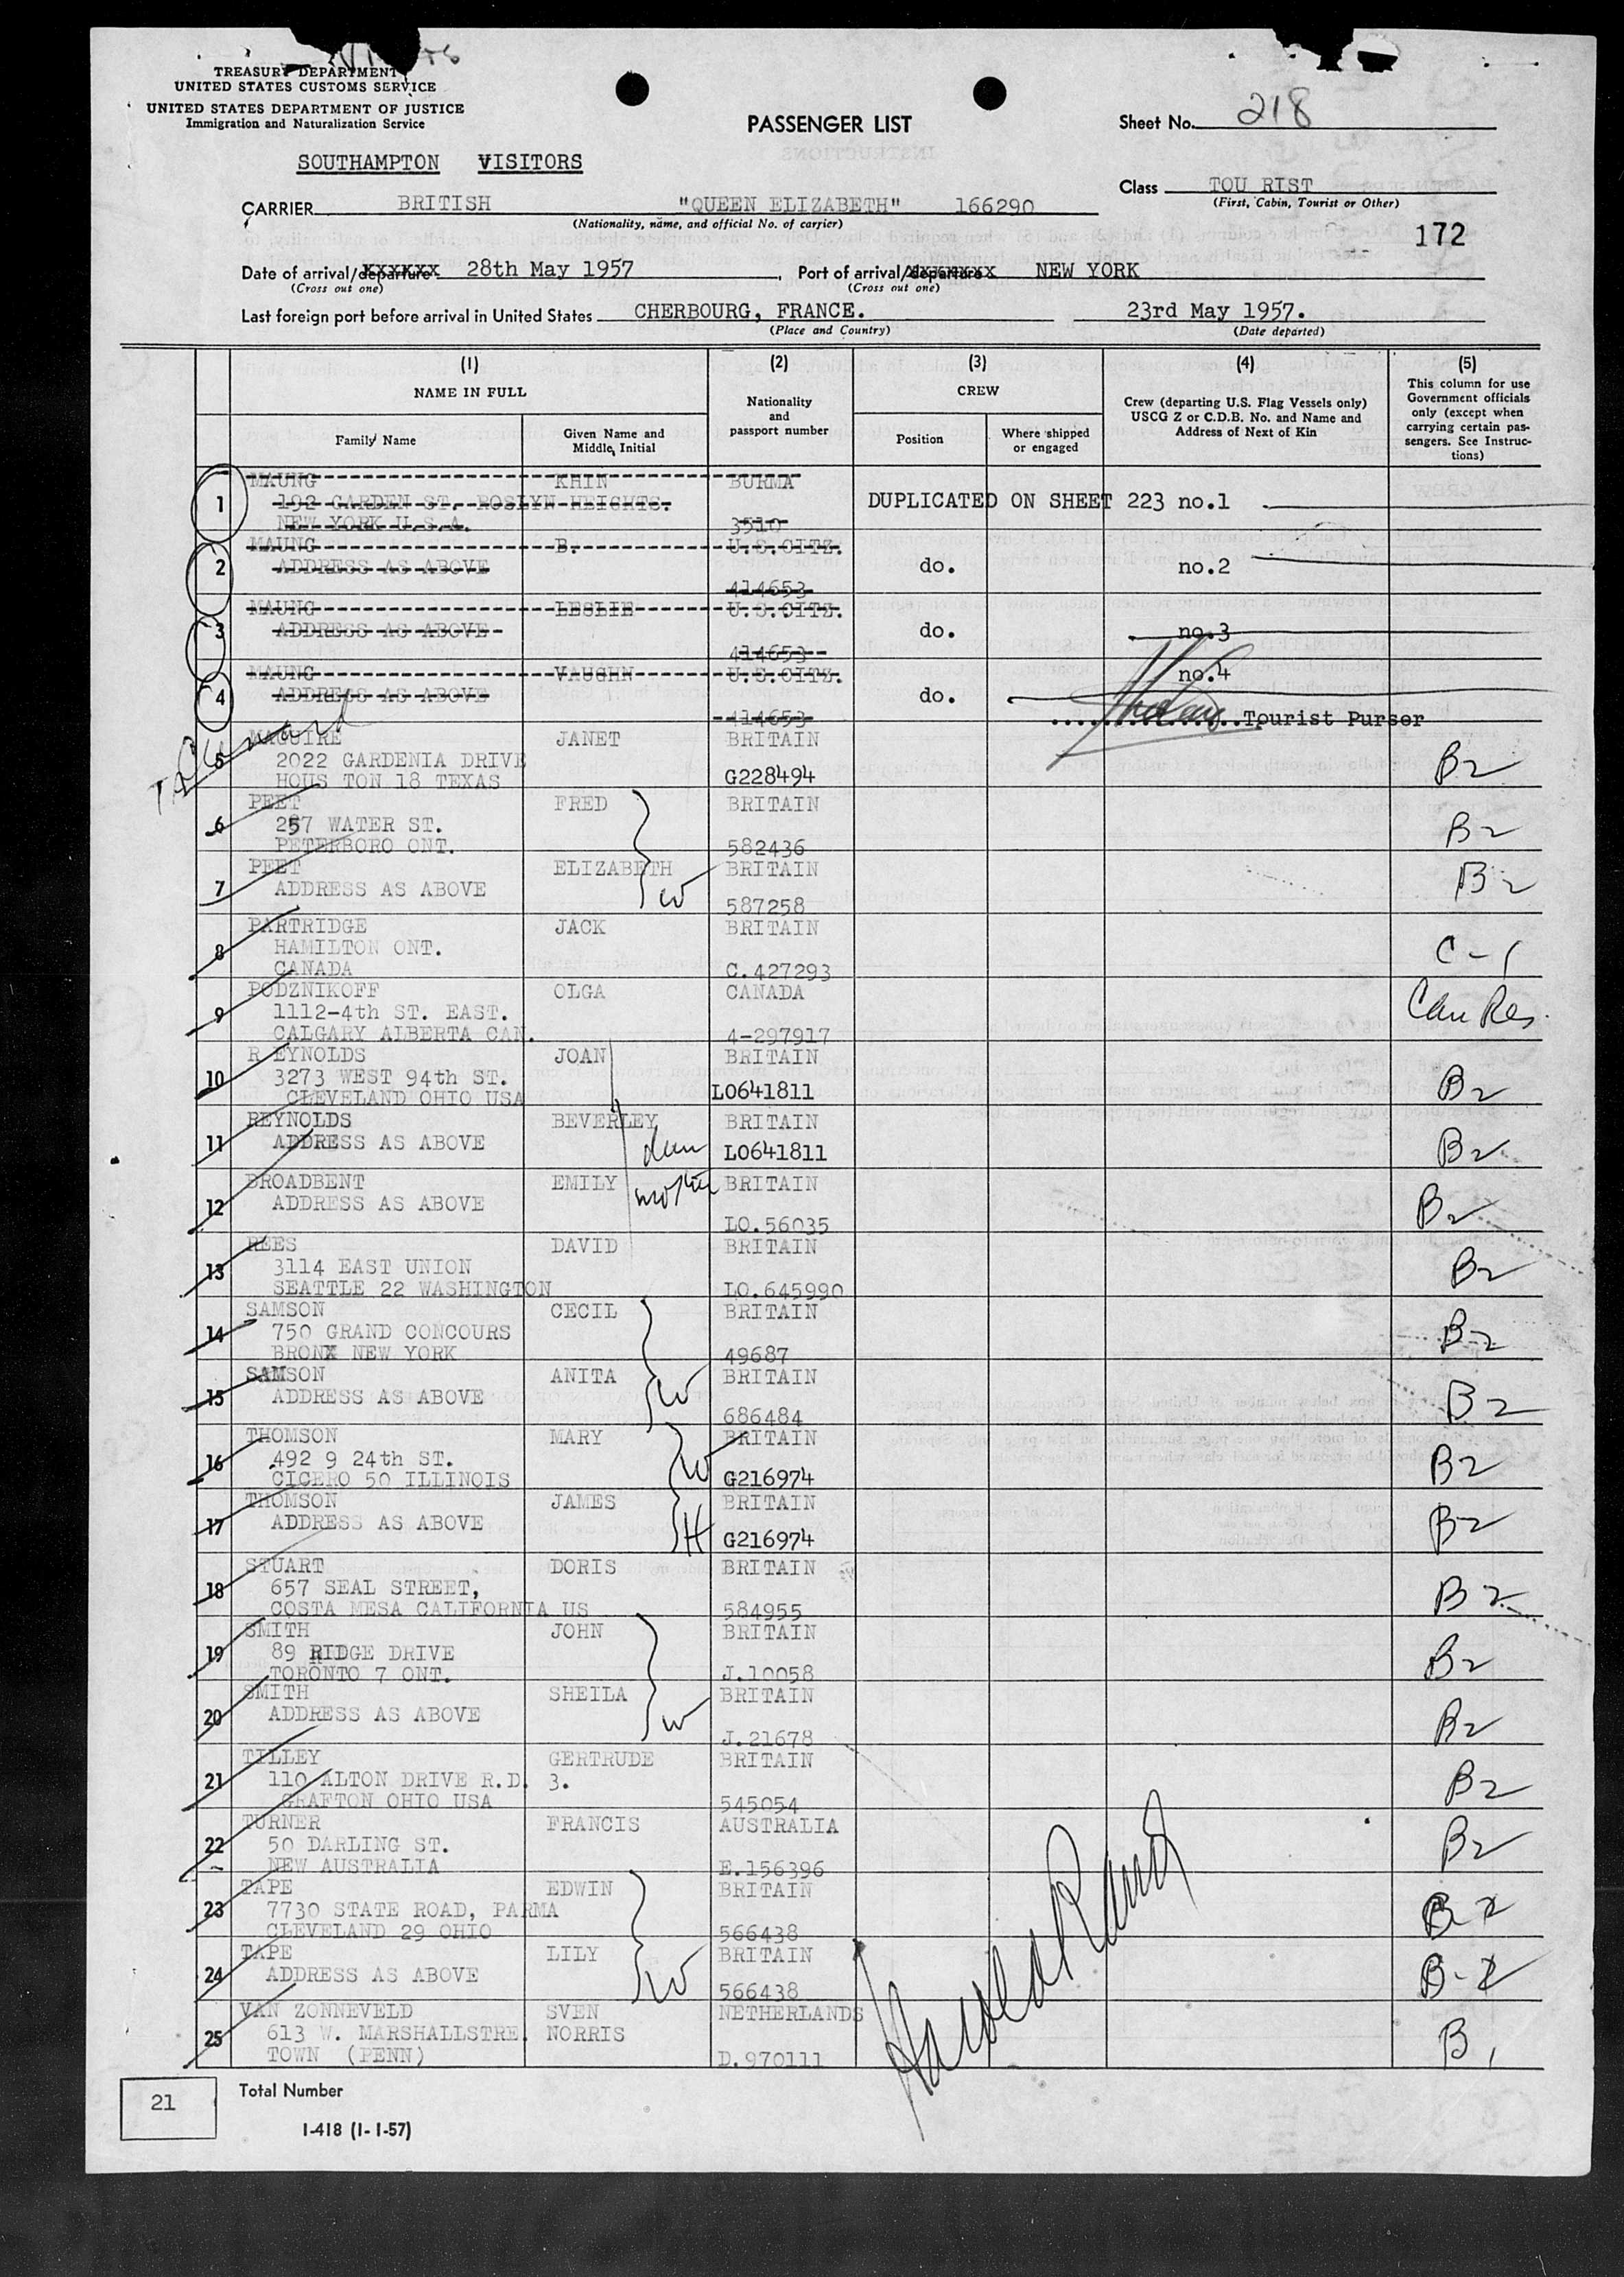 TREASURY DEPARTMENT
UNITED STATES CUSTOMS SERVICE
UNITED STATES DEPARTMENT OF JUSTICE
Immigration and Naturalization Service
PASSENGER LIST
Sheet No. 218
SOUTHAMPTON VISITORS
Class TOU RIST
(First, Cabin, Tourist or Other)
CARRIER BRITISH "QUEEN ELIZABETH" 166290
(Nationality, name, and official No. of carrier)
172
Date of arrival/departure 28th May 1957 Port of arrival/departure NEW YORK
(Cross out one) (Cross out one)
Last foreign port before arrival in United States CHERBOURG, FRANCE. 23rd May 1957.
(Place and Country) (Date departed)
(1) (2) (3) (4) (5)
NAME IN FULL
Nationality and passport number
CREW
Crew (departing U.S. Flag Vessels only) USCG Z or C.D.B. No. and Name and Address of Next of Kin
This column for use Government officials only (except when carrying certain passengers. See Instructions)
Family Name Given Name and Middle Initial Position Where shipped or engaged
1 MAUNG KHIN BURMA
192 GARDEN ST. ROSLYN HEIGHTS. DUPLICATED ON SHEET 223 no.1
NEW YORK U.S.A. 3510
2 MAUNG B. U.S.CITZ.
ADDRESS AS ABOVE do. no.2
414653
3 MAUNG LESLIE U.S.CITZ.
ADDRESS AS ABOVE do. no.3
414653
4 MAUNG VAUGHN U.S.CITZ.
ADDRESS AS ABOVE do. no.4
414653 Tourist Purser
5 MAGUIRE JANET BRITAIN
2022 GARDENIA DRIVE
HOUS TON 18 TEXAS G228494 B2
6 PEET FRED BRITAIN
257 WATER ST. B2
PETERBORO ONT. 582436
7 PEET ELIZABETH BRITAIN
ADDRESS AS ABOVE W B2
587258
8 PARTRIDGE JACK BRITAIN
HAMILTON ONT. C-1
CANADA C.427293
9 PODZNIKOFF OLGA CANADA
1112-4th ST. EAST. Can Res.
CALGARY ALBERTA CAN. 4-297917
10 R EYNOLDS JOAN BRITAIN
3273 WEST 94th ST. B2
CLEVELAND OHIO USA L0641811
11 REYNOLDS BEVERLEY BRITAIN
ADDRESS AS ABOVE L0641811 B2
12 BROADBENT EMILY mother BRITAIN
ADDRESS AS ABOVE B2
LO.56035
13 REES DAVID BRITAIN
3114 EAST UNION B2
SEATTLE 22 WASHINGTON LO.645990
14 SAMSON CECIL BRITAIN
750 GRAND CONCOURS B2
BRONX NEW YORK 49687
15 SAMSON ANITA BRITAIN
ADDRESS AS ABOVE W B2
686484
16 THOMSON MARY BRITAIN
492 9 24th ST. W B2
CICERO 50 ILLINOIS G216974
17 THOMSON JAMES BRITAIN
ADDRESS AS ABOVE H G216974 B2
18 STUART DORIS BRITAIN
657 SEAL STREET, B2
COSTA MESA CALIFORNIA US 584955
19 SMITH JOHN BRITAIN
89 RIDGE DRIVE B2
TORONTO 7 ONT. J.10058
20 SMITH SHEILA BRITAIN
ADDRESS AS ABOVE W B2
J.21678
21 TILLEY GERTRUDE BRITAIN
110 ALTON DRIVE R.D. 3. B2
GRAFTON OHIO USA 545054
22 TURNER FRANCIS AUSTRALIA
50 DARLING ST. B2
NEW AUSTRALIA E.156396
23 TAPE EDWIN BRITAIN
7730 STATE ROAD, PARMA B-2
CLEVELAND 29 OHIO 566438
24 TAPE LILY BRITAIN
ADDRESS AS ABOVE W B-2
566438
25 VAN ZONNEVELD SVEN NETHERLANDS
613 W. MARSHALLSTRE. NORRIS B1
TOWN (PENN) D.970111
21 Total Number
I-418 (1-1-57)